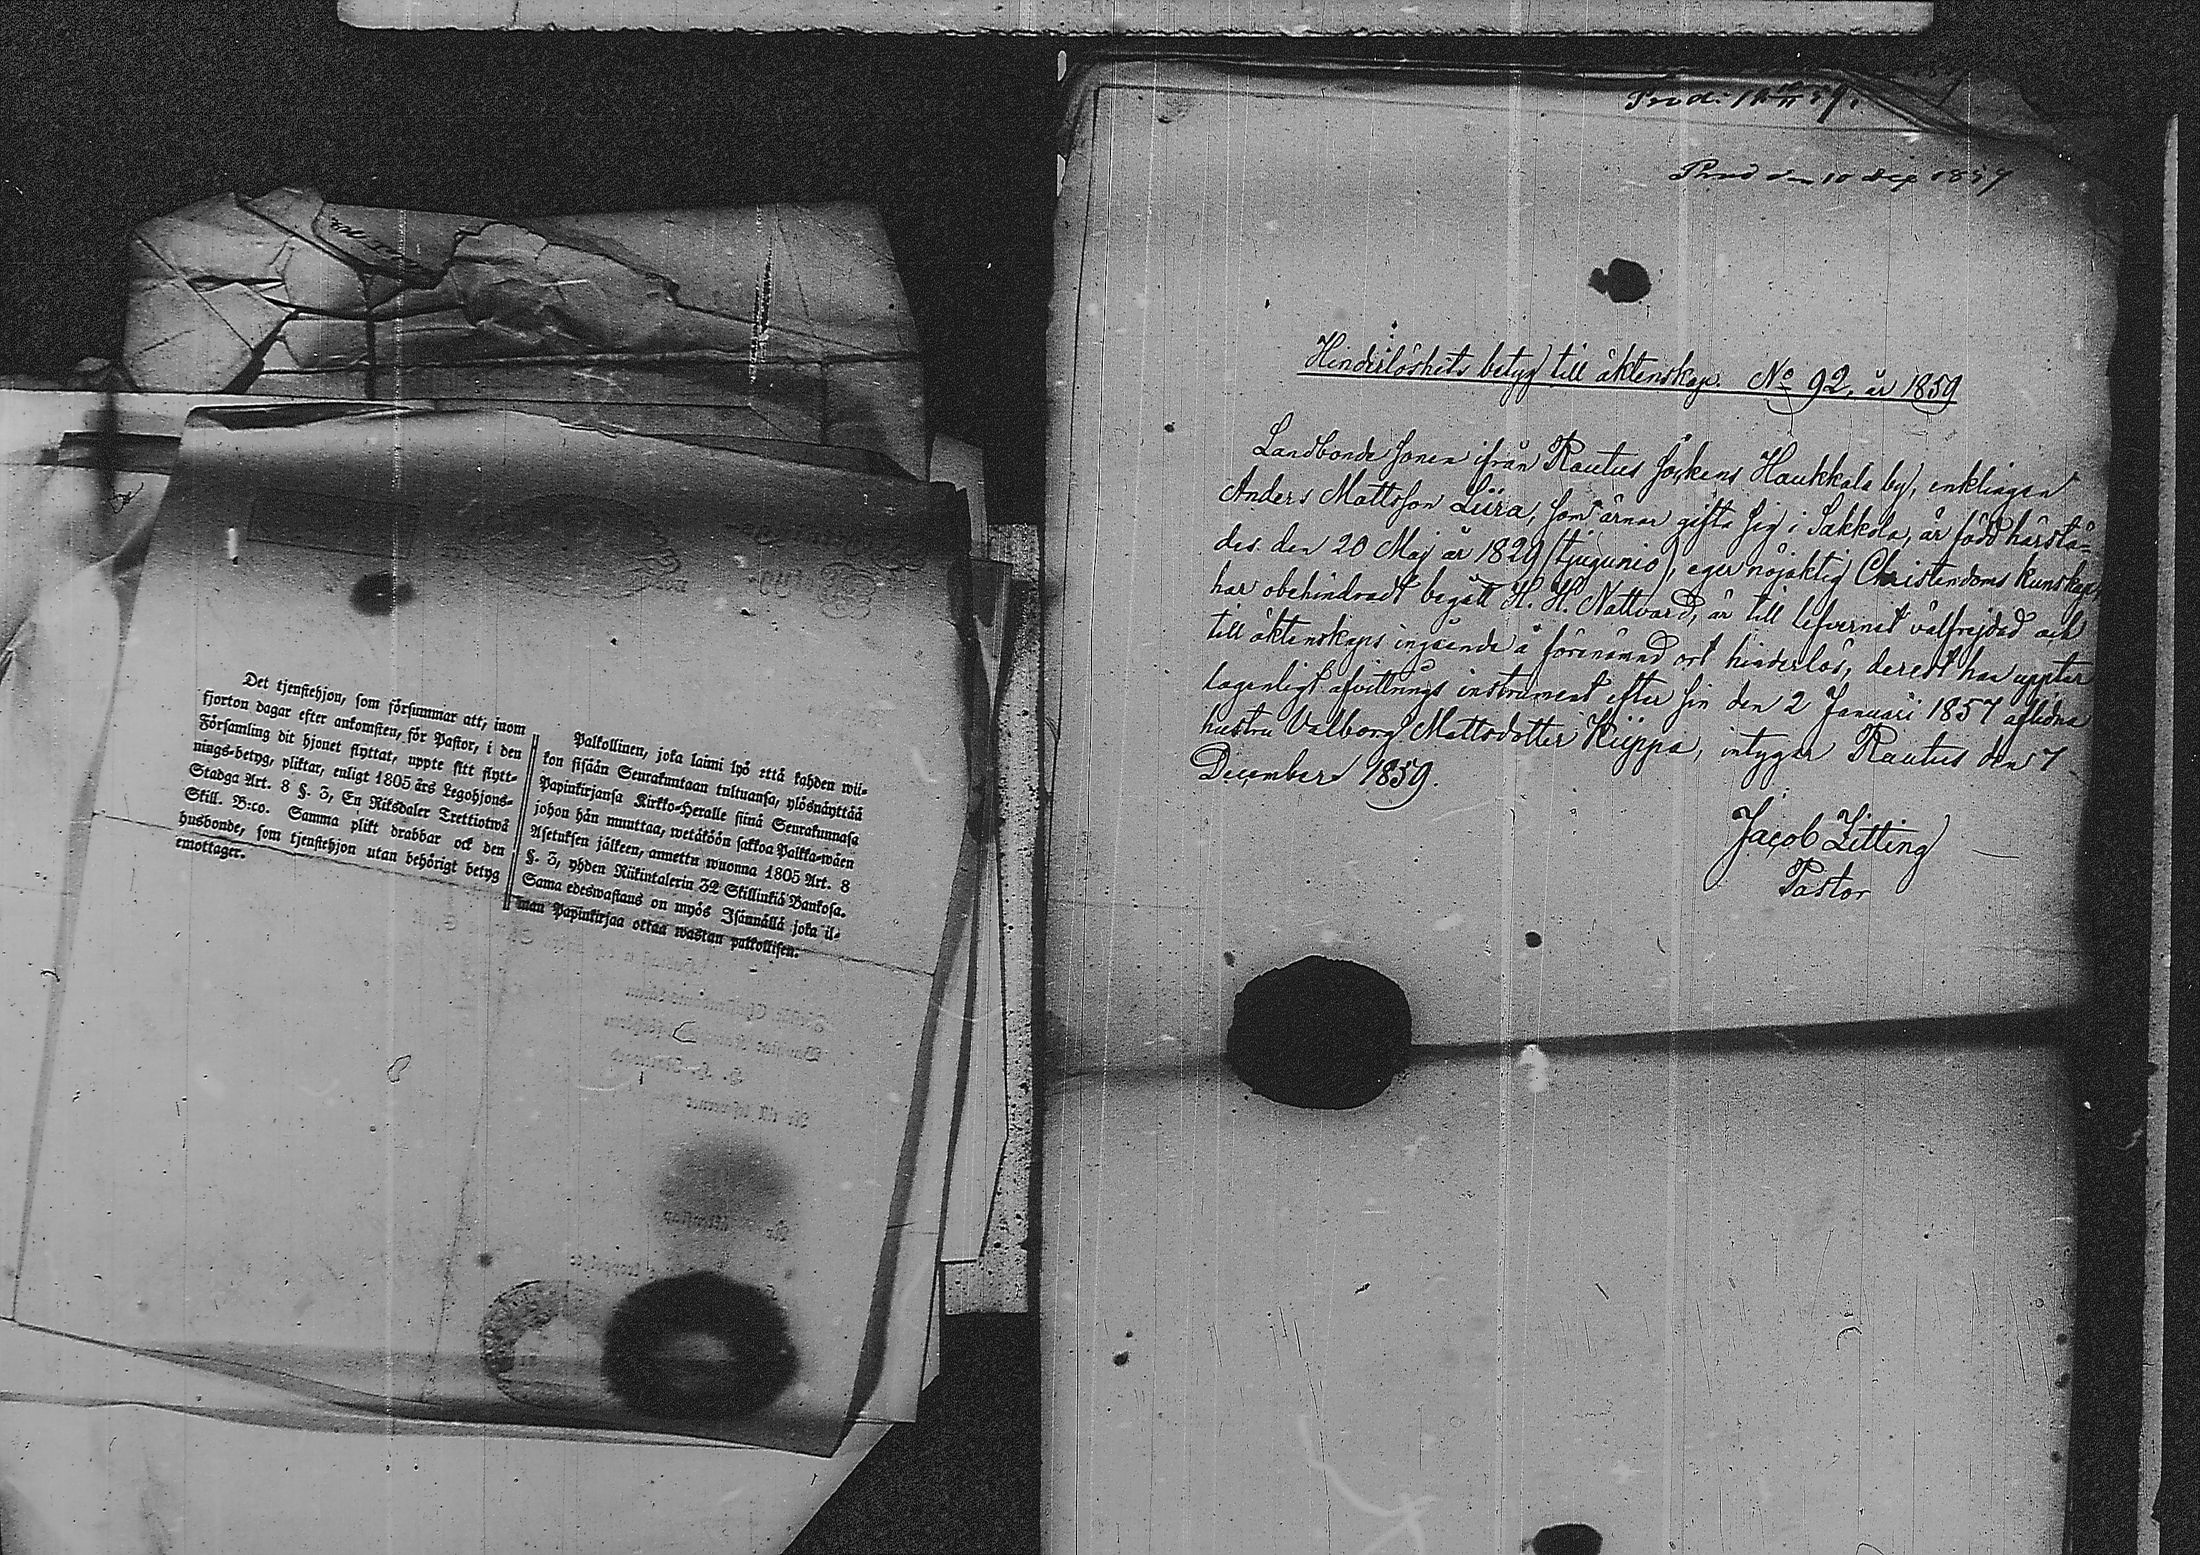 Det tjenstehjon, som försummar att, inom
fjorton dagar efter ankomsten, för Pastor, i den
Församling dit hjonet flyttat, uppte sitt flytt-
nings-betyg, pliktar, enligt 1805 års Legohjons-
Stadga Art. 8 §. 3, En Riksdaler Trettiotwå
Skill. B:co. Samma plikt drabbar ock den
husbonde, som tjenstehjon utan behörigt betyg
emottager.
Palkollinen, joka laimi lyö että kahden wii-
kon sisään Seurakuntaan tultuansa, ylösnäyttää
Papinkirjansa Kirkko-Heralle siinä Seurakunnasa
johon hän muuttaa, wetäköön sakkoa Palkka-wäen
Asetuksen jälkeen, annettu wuonna 1805 Art. 8
§. 3, yhden Riikintalerin 32 Skillinkiä Bankosa.
Sama edeswastaus on myös Isännällä joka il-
man Papinkirjaa ottaa wastan palkollisen.
Prod den 10 1859
Hinderlöshets betyg till äktenskap. No 92, år 1859
Landbonde sonen ifrån Rautus Sockens Haukkala by, enklingen
Anders Mattsson Liira, som ärnar gifta sig i Sakkola, är född härstä-
des den 20 Maj år 1829 (tjugunio), eger nöjaktig Christendoms kunskap,
har obehindradt begått H. H. Nattvard, är till lefvernet välfrejdad och
till äktenskaps ingående å förenämnd ort hinderlös, derest han uppter
lagenligt afvittrings instrument efter sin den 2 Januari 1857 aflidna
hustru Valborg Mattsdotter Kiippa, intygar Rautus den 7
December 1859.
Jacob Zitting
Pastor